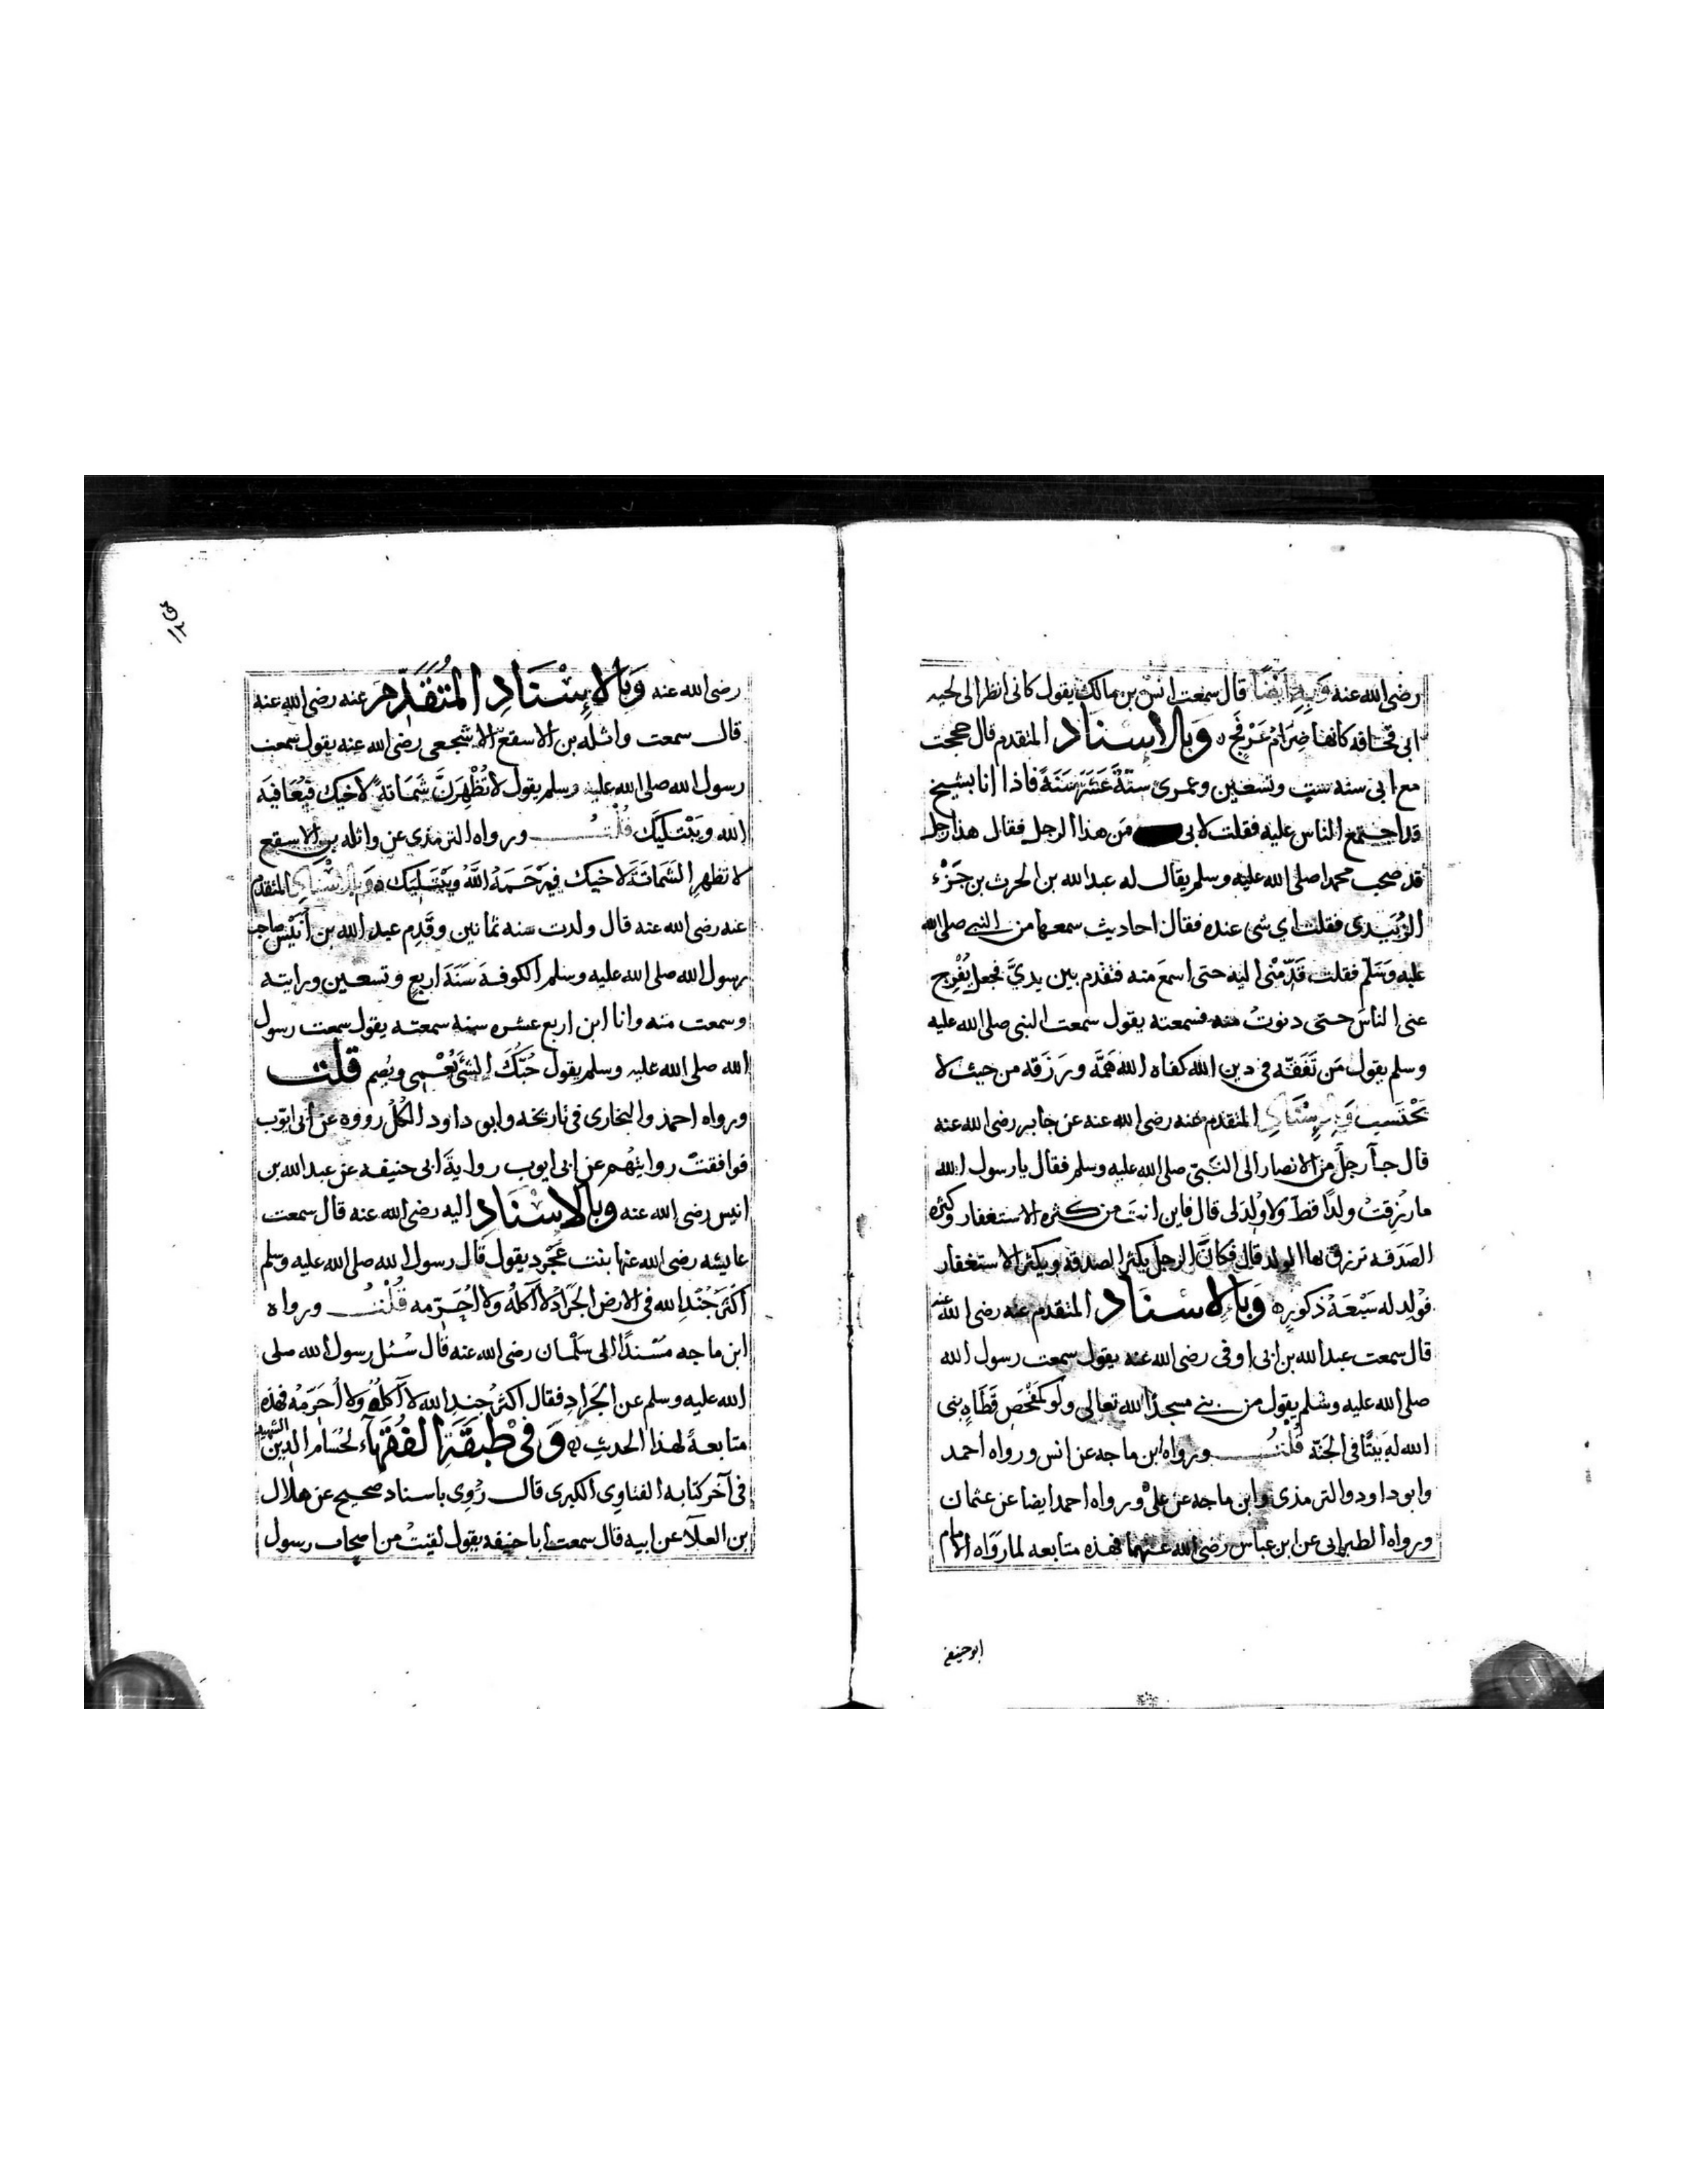 رضى الله عنه وَبِهِ اَيْضًا قال سمعت انس بن مالك يقول كانى انظر الى لحيه
ابى قحافه كانها ضِرَامُ عَرْفَجٍ وَبِالاسْناد المتقدم قال حججت
مع ابى سنه ست وتسعين وعمرى ستّةَ عَشَرَ سَنَةً فاذا انا بشيخ
قد اجتمع الناس عليه فقلت لابى مَن هذا الرجل فقال هذا رجل
قد صحب محمدا صلى الله عليه وسلم يقال له عبد الله بن الحرث بن جَزْء
الزُّبَيدى فقلت اى شى عنده فقال احاديث سمعها من النبي صلى الله
عليه وَسَلّم فقلت قَدِّمْنى اليه حتى اسمع منه فتقدم بين يديَّ فجعل يُفْرِج
عنى الناسَ حتى دنوتُ منه فسمعته يقول سمعت النبى صلى الله عليه
وسلم يقول مَن تَفَقّه فى دين الله كفاه الله هَمَّه ورَزَقه من حيث لا
يَحْتَسِب وَبِالاِسْنَادِ المتقدم عنه رضى الله عنه عن جابر رضى الله عنه
قال جآ رجلٌ من الانصار الى النَّبىّ صلى الله عليه وسلم فقال يا رسول الله
ما رُزِقتُ ولدًا قطّ ولا وُلِدَ لى قال فاين انتَ من كثره الاستغفار وكثره
الصَدَقه ترزق بها الولد قال فكانَ الرجل يكثر الصدقه ويكثر الاستغفار
فوُلِد له سَبْعَةُ ذكورٍ وَبالاِسْنَاد المتقدم عنه رضى الله عنه
قال سمعت عبد الله بن ابى اوفى رضى الله عنه يقول سمعت رسول الله
صلى الله عليه وسَلم يقول من بنى مسجدًا لله تعالى ولو كَمَفْحَصِ قَطَاهٍ بنى
الله له بَيتًا فى الجَنة قُلْتُ ورواه ابن ماجه عن انس ورواه احمد
وابو داود والترمذى وابن ماجه عن على ورواه احمد ايضا عن عثمان
ورواه الطبرانى عن ابن عباس رضى الله عنهما فهذه متابعه لما رَوَاه الامام
ابو حنيفه
ق ١٢
رضى الله عنه وَبالاِسْنَادِ المُتَقَدِّمِ عنه رضى الله عنه
قال سمعت واثله بن الاسقع الاشجعى رضى الله عنه يقول سمعت
رسول الله صلى الله عليه وسلم يقول لا تُظْهِرَنَّ شَمَاتةً لاخيك فيُعَافيَه
الله ويَبْتليَك قُلْتُ ورواه الترمذى عن واثله بن الاسقع
لا تظهرِ الشَمَاتَةَ لاخيك فيَرْحَمَهُ اللّهُ ويَبْتَليَك وَبِالاِسْنَادِ المتقدم
عنه رضى الله عنه قال ولدت سنه ثمانين وقَدِم عبد الله بن اُنَيْس صاحب
رسول الله صلى الله عليه وسلم الكوفةَ سَنَةَ اربعٍ وتسعين ورايته
وسمعت منه وانا ابن اربع عشره سنه سمعته يقول سمعت رسول
الله صلى الله عليه وسلم يقول حُبُّكَ الشَّىَ يُعْمِى ويُصِم قلت
ورواه احمد والبخارى فى تاريخه وابو داود الكُلّ رووه عن ابى ايّوب
فوافقتْ روايتُهم عن ابى ايوب روايةَ ابى حنيفه عن عبد الله بن
انيس رضى الله عنه وبالاِسْنَادِ اليه رضى الله عنه قال سمعت
عايشه رضى الله عنها بنت عَجْرد يقول قال رسول الله صلى الله عليه وسلم
اكثَرُ جُنْدِ الله فى الارض الجَرَادُ لا آكلُهُ ولا اُحَرّمه قُلْتُ ورواه
ابن ماجه مُسْنَدًا الى سَلْمان رضى الله عنه قال سُئل رسول الله صلى
الله عليه وسلم عن الجَرادِ فقال اكثرُ جندِ الله لا آكلُهُ ولا اُحَرّمُه فهذه
متابعةٌ لهذا الحديثِ وَفى طَبَقَةِ الفُقَهآء لحُسَام الدين الشهيد
فى آخر كتابه الفتاوى الكبرى قال رُوِى باسناد صحيح عن هلال
بن العلآ عن ابيه قال سمعت ابا حنيفه يقول لقيتُ من اصحاب رسول